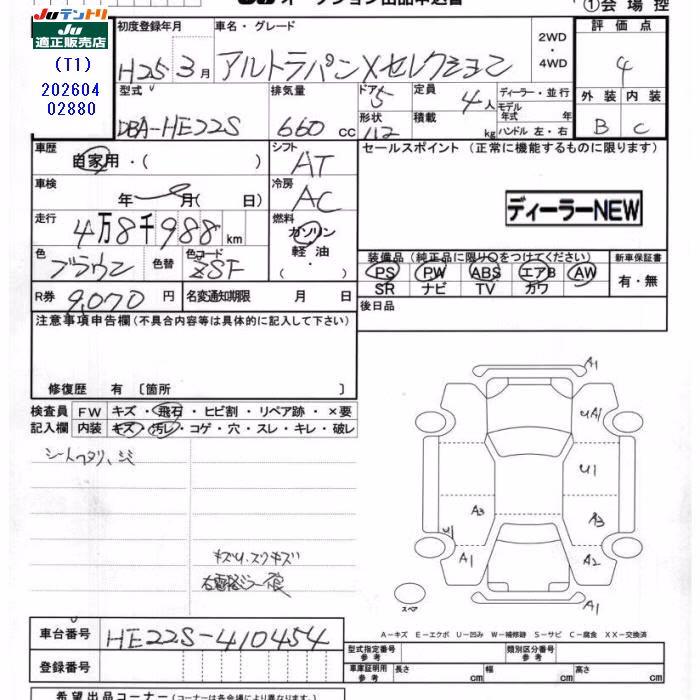 Juテントリ
オークション出品申込書
①会場控
Ju
適正販売店
(T1)
202604
02880
初度登録年月
車名・グレード
H25年3月
アルトラパンXセレクション
2WD
・
4WD
評価点
4
型式
排気量
ドア
定員
ディーラー・並行
外装 内装
DBA-HE22S
660cc
5
4人
モデル年式 年
形状
積載
kg
ハンドル 左・右
B C
車歴
自家用・( )
シフト
AT
セールスポイント (正常に機能するものに限ります)
車検
年 月( 日)
冷房
AC
ディーラーNEW
走行
4万8千988km
燃料
ガソリン
軽油
・
色
ブラウン
色替
色コード
ZSF
装備品 (純正品に限り○をつけてください)
新車保証書
PS PW ABS エアB AW
SR ナビ TV カワ
有・無
R券
9,070円
名変通知期限 月 日
後日品
注意事項申告欄(不具合内容等は具体的に記入して下さい)
修復歴 有 〔箇所 〕
検査員
記入欄
FW キズ・飛石・ヒビ割・リペア跡・×要
内装 キズ・汚レ・コゲ・穴・スレ・キレ・破レ
シートヘタリ、シミ
キズU、スリキズ
A1
UA1
U1
A3
A3
U1
A1
A2
スペア
A-キズ E-エクボ U-凹み W-補修跡 S-サビ C-腐食 XX-交換済
車台番号
HE22S-410454
登録番号
型式指定番号
参考
類別区分番号
参考
車庫証明用
参考
長さ cm 幅 cm 高さ cm
希望出品コーナー(名称は各会場により異なります)